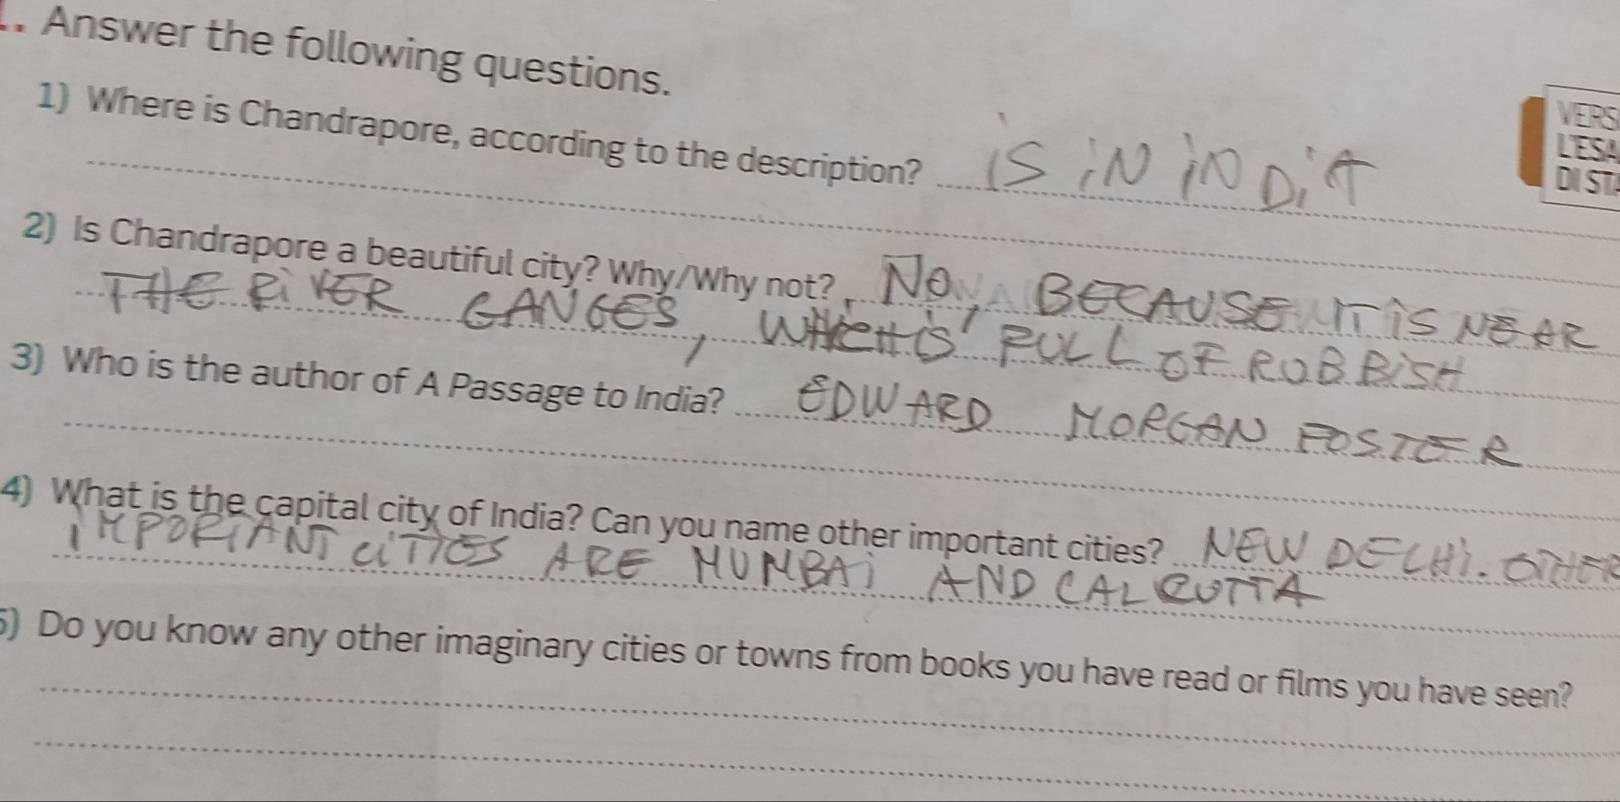 .. Answer the following questions.
1) Where is Chandrapore, according to the description? iS iN iNDiA
VERS
L'ESA
DI STA
2) Is Chandrapore a beautiful city? Why/Why not? NO, BECAUSE IT iS NEAR
THE RiVER GANGES, WHICH iS FULL OF ROBBiSH
3) Who is the author of A Passage to India? EDWARD MORGAN FOSTER
4) What is the capital city of India? Can you name other important cities? NEW DELHi. OTHER
IMPORTANT CiTIES ARE MUMBAi AND CALCUTTA
5) Do you know any other imaginary cities or towns from books you have read or films you have seen?